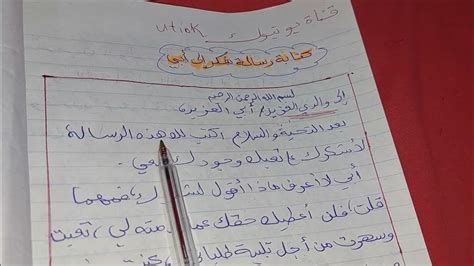 قناة يوتيوك utiok
كتابة رسالة شكر الى أبي
بسم الله الرحمن الرحيم
إلى والدي العزيز/ أبي العزيز
بعد التحية والسلام اكتب لك هذه الرسالة
لأشكرك على تعبك وجودك معي.
أبي لا أعرف ماذا أقول لشكرك، فمهما
قلت، فلن أعطيك حقك عما قدمته لي، تعبت
وسهرت من أجل تلبية طلباتي